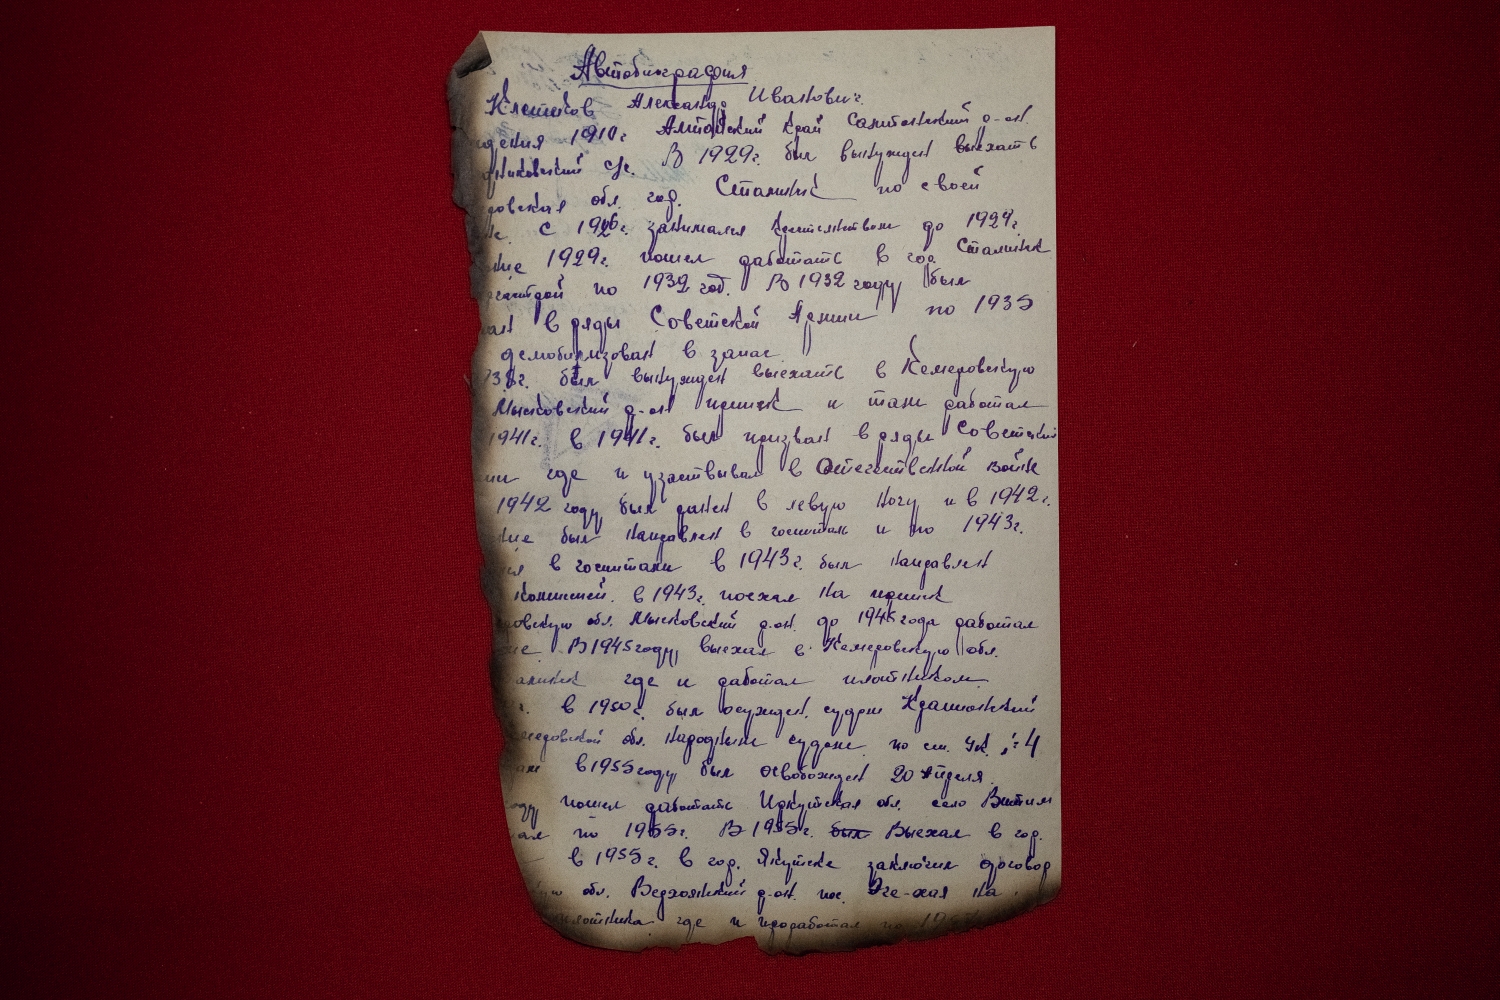 Автобиография
Клешков Александр Иванович.
ждения 1910г. Алтайский край Салтонский р-он.
никовский с/с. В 1929г. был вынужден выехать
ровская обл. гор. Сталинск по своей
С 1926г. занимался крестьянством до 1929г.
1929г. пошел работать в гор. Сталинск
по 1932 год. В 1932 году был
ван в ряды Советской Армии по 1935
демобилизован в запас
был вынужден выехать в Кемеровскую
Мысковский р-он прииск и там работал
1941г. в 1941г. был призван в ряды Советской
ии где и участвывал в Отечественной войне
1942 году был ранен в левую ногу и в 1942г.
был направлен в госпиталь и по 1943г.
в госпитали в 1943г. был направлен
комиссией. в 1943г. поехал на прииск
ровскую обл. Мысковский р.он. до 1945 года работал
В 1945 году выехал в Кемеровскую обл.
алинск где и работал плотником.
г. в 1950г. был осужден. судом Крапивинский
меровской обл. Народным судом. по ст. УК. 4
в 1955 году был освобожден 20 Апреля.
оду пошел работать Иркутская обл. село Витим
ал по 1955г. В 1955г. был Выехал в гор.
в 1955г. в гор. Якутске заключил договор
обл. Верхоянский р-он. пос. Эге-хая на
плотника где и проработал по